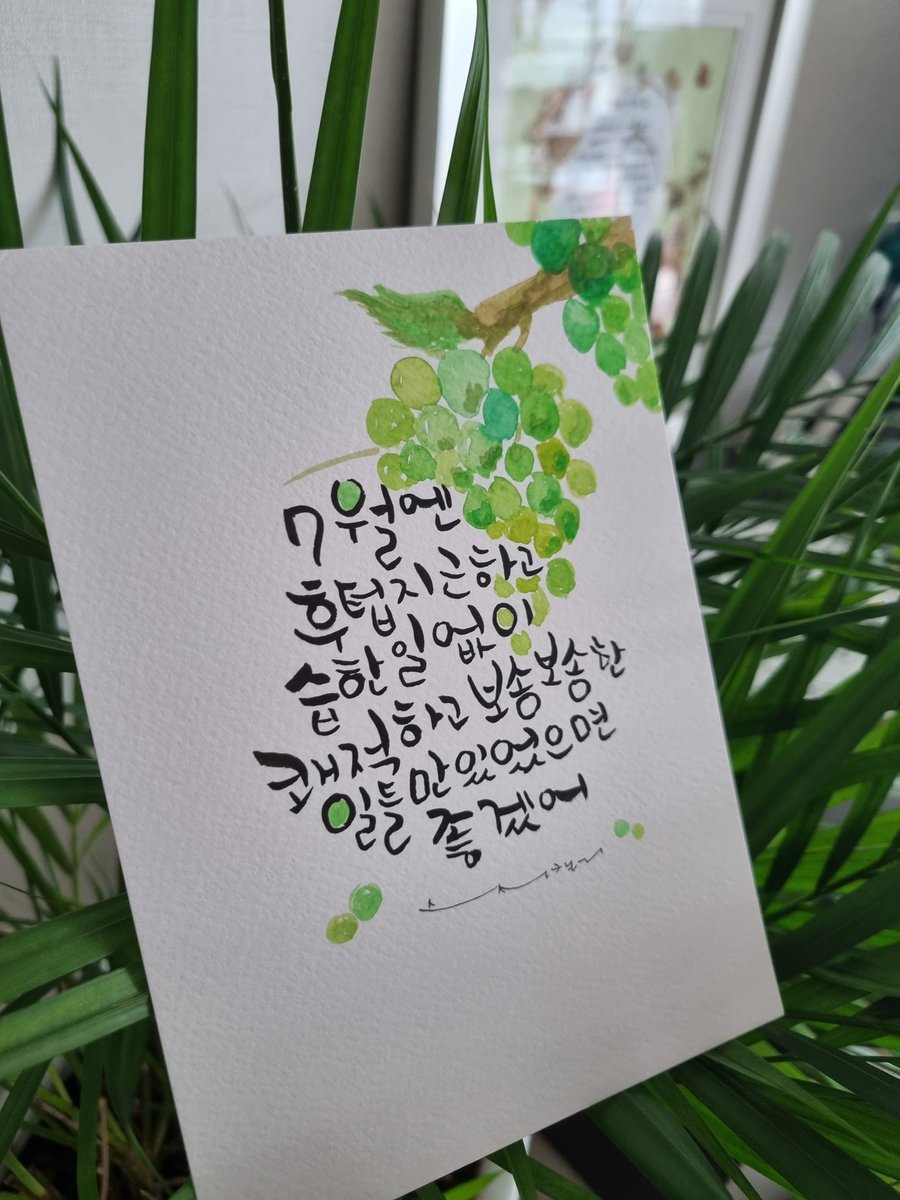 7월엔
후텁지근하고
습한일없이
쾌적하고 보송보송한
일들만있었으면
좋겠어